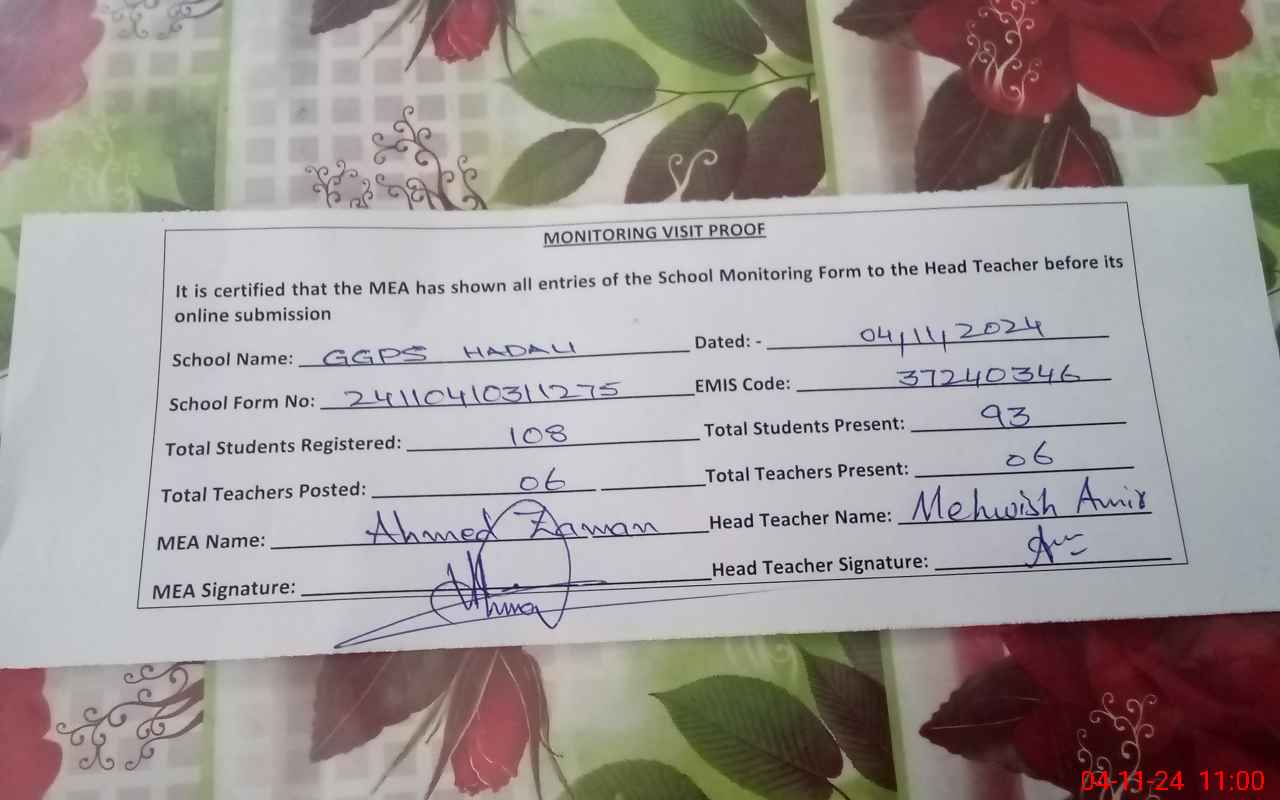 MONITORING VISIT PROOF
It is certified that the MEA has shown all entries of the School Monitoring Form to the Head Teacher before its
online submission
School Name: GGPS HADALI Dated: - 04/11/2024
School Form No: 24110410311275 EMIS Code: 37240346
Total Students Registered: 108 Total Students Present: 93
Total Teachers Posted: 06 Total Teachers Present: 06
MEA Name: Ahmed Zaman Head Teacher Name: Mehwish Amir
MEA Signature: Head Teacher Signature:
04-11-24 11:00